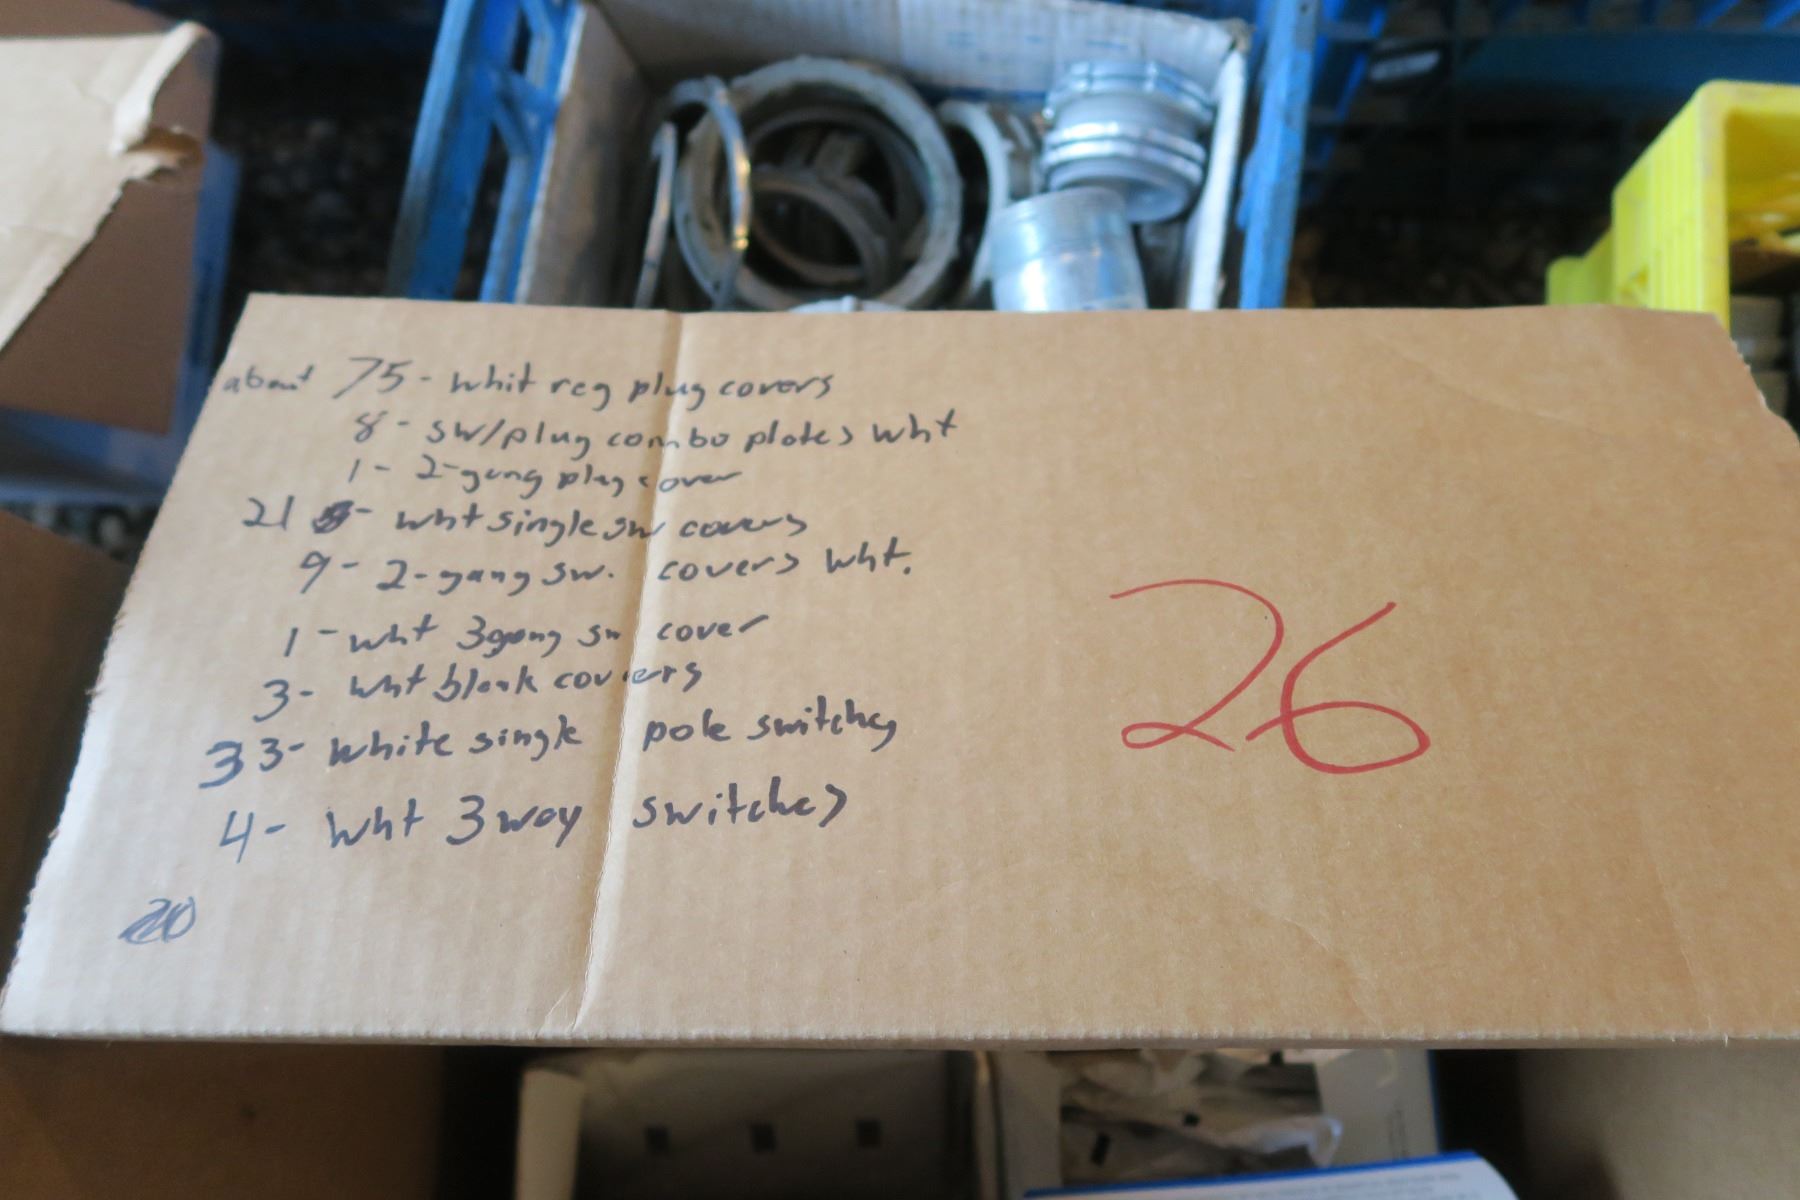 about 75 - whit reg plug covers
8 - sw/plug combo plates wht
1 - 2-gang plug cover
21 - wht single sw covers
9 - 2-gang sw. covers wht.
1 - wht 3gang sw cover
3 - wht blank covers
33 - white single pole switches
4 - wht 3way switches
20
26